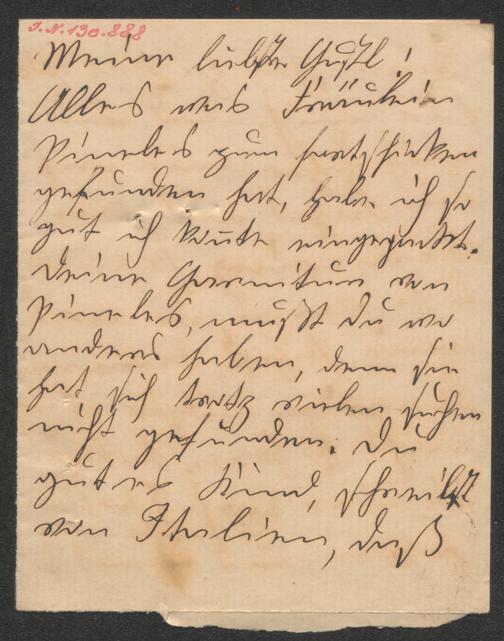 I.N.130.888
Meine liebste Gustl!
Alles was Fräulein
Pineles zum fortschicken
gefunden hat, habe ich so
gut ich konnte eingepackt.
Deine Garnitur von
Pineles, mußt du wo
anders haben, denn sie
hat sich trotz vielen suchen
nicht gefunden. Du
gutes Kind, schreibst
von Italien, daß